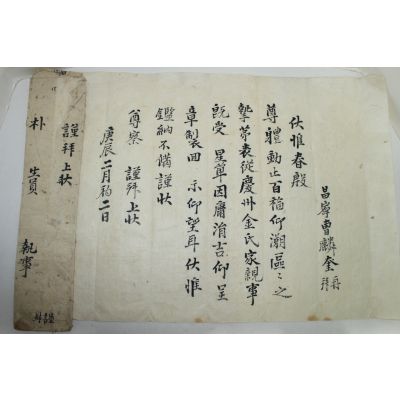 昌寧曺麟奎 再拜
伏惟春殷
尊體動止百福仰溯區々之
從慶州金氏家親事
旣受 星單因庸涓吉仰呈
章製回 示仰望耳伏惟
鑑納不備謹狀
尊察 謹拜上狀
庚辰二月初二日
謹拜上狀
朴 生員 執事
謹封